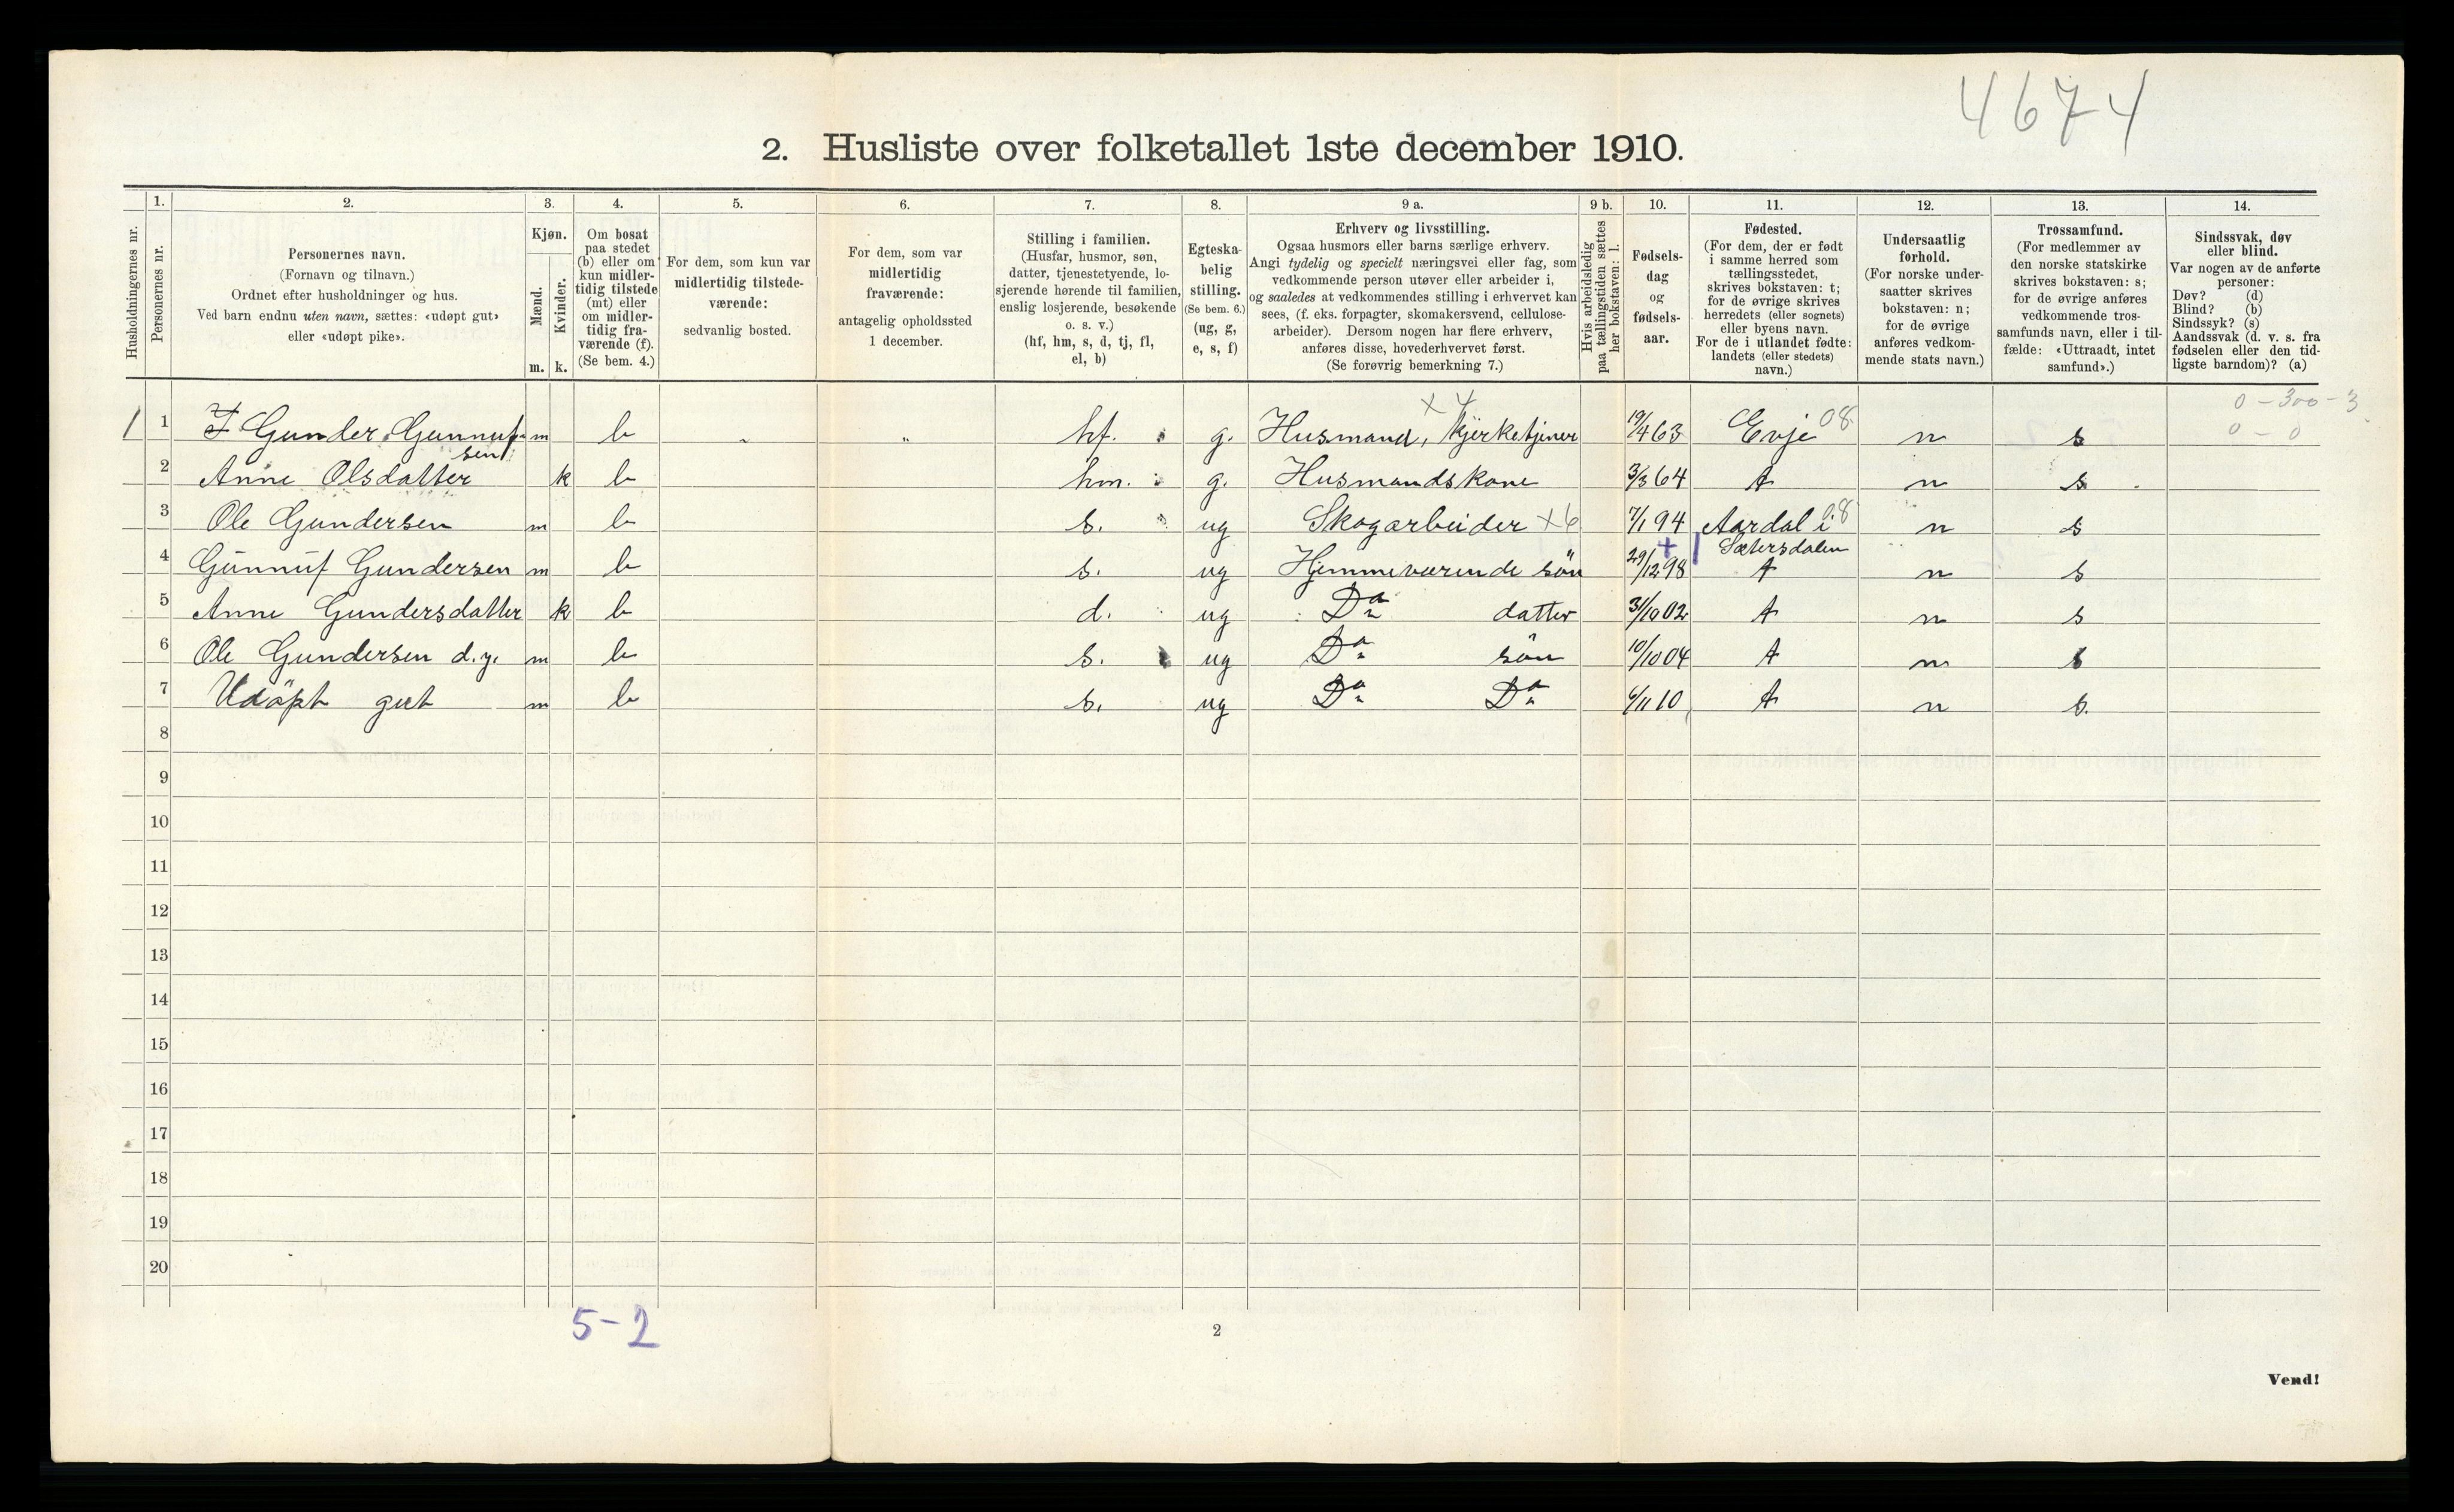 4674
2. Husliste over folketallet 1ste december 1910.
Husholdningernes nr.
1.
Personernes nr.
2.
Personernes navn.
(Fornavn og tilnavn.)
Ordnet efter husholdninger og hus.
Ved barn endnu uten navn, sættes: «udøpt gut»
eller «udøpt pike».
3.
Kjøn.
Mænd.
Kvinder.
m. k.
4.
Om bosat
paa stedet
(b) eller om
kun midler-
tidig tilstede
(mt) eller
om midler-
tidig fra-
værende (f).
(Se bem. 4.)
5.
For dem, som kun var
midlertidig tilstede-
værende:
sedvanlig bosted.
6.
For dem, som var
midlertidig
fraværende:
antagelig opholdssted
1 december.
7.
Stilling i familien.
(Husfar, husmor, søn,
datter, tjenestetyende, lo-
sjerende hørende til familien,
enslig losjerende, besøkende
o. s. v.)
(hf, hm, s, d, tj, fl,
el, b)
8.
Egteska-
belig
stilling.
(Se bem. 6.)
(ug, g,
e, s, f)
9 a.
Erhverv og livsstilling.
Ogsaa husmors eller barns særlige erhverv.
Angi tydelig og specielt næringsvei eller fag, som
vedkommende person utøver eller arbeider i,
og saaledes at vedkommendes stilling i erhvervet kan
sees, (f. eks. forpagter, skomakersvend, cellulose-
arbeider). Dersom nogen har flere erhverv,
anføres disse, hovederhvervet først.
(Se forøvrig bemerkning 7.)
9 b.
Hvis arbeidsledig
paa tællingstiden sættes
her bokstaven: l.
10.
Fødsels-
dag
og
fødsels-
aar.
11.
Fødested.
(For dem, der er født
i samme herred som
tællingsstedet,
skrives bokstaven: t;
for de øvrige skrives
herredets (eller sognets)
eller byens navn.
For de i utlandet fødte:
landets (eller stedets)
navn.)
12.
Undersaatlig
forhold.
(For norske under-
saatter skrives
bokstaven: n;
for de øvrige
anføres vedkom-
mende stats navn.)
13.
Trossamfund.
(For medlemmer av
den norske statskirke
skrives bokstaven: s;
for de øvrige anføres
vedkommende tros-
samfunds navn, eller i til-
fælde: «Uttraadt, intet
samfund».)
14.
Sindssvak, døv
eller blind.
Var nogen av de anførte
personer:
Døv? (d)
Blind? (b)
Sindssyk? (s)
Aandssvak (d. v. s. fra
fødselen eller den tid-
ligste barndom)? (a)
x 4 0 - 300 - 3
1 1 Gunder Gunnuf- m b " " hf. g. Husmand, Kjerketjener 19/4 63 Evje 08 n s 0 - 0
sen
2 Anne Olsdatter k b hm. g. Husmandskone 3/3 64 t n s
3 Ole Gundersen m b s. ug Skogarbeider x6 7/1 94 Aardal i 08 n s
Sætersdalen
4 Gunnuf Gundersen m b s. ug Hjemmeværende sön 29/12 98 t n s
5 Anne Gundersdatter k b d. ug Do datter 31/10 02 t n s
6 Ole Gundersen d.y. m b s. ug Do sön 10/10 04 t n s
7 Udöpt gut m b s. ug Do Do 6/11 10 t n s.
8
9
10
11
12
13
14
15
16
17
18
19
20
5-2
2
Vend!